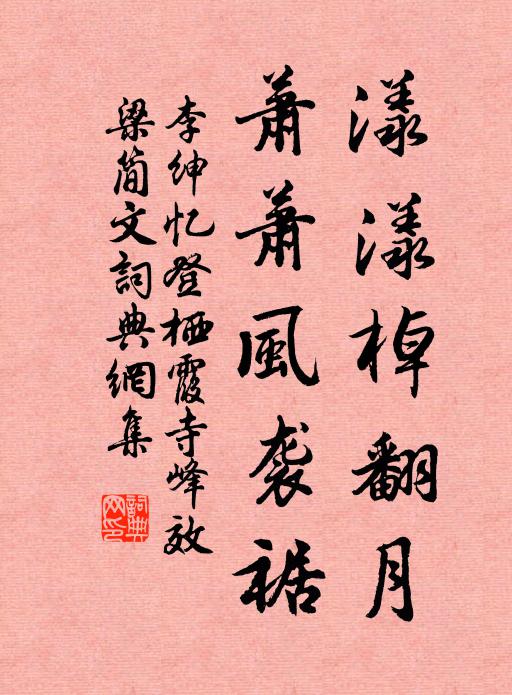 漾漾棹翻月
蕭蕭風袭裾
李紳忆登栖霞寺峰效
梁简文詞典網集
詞典
网印